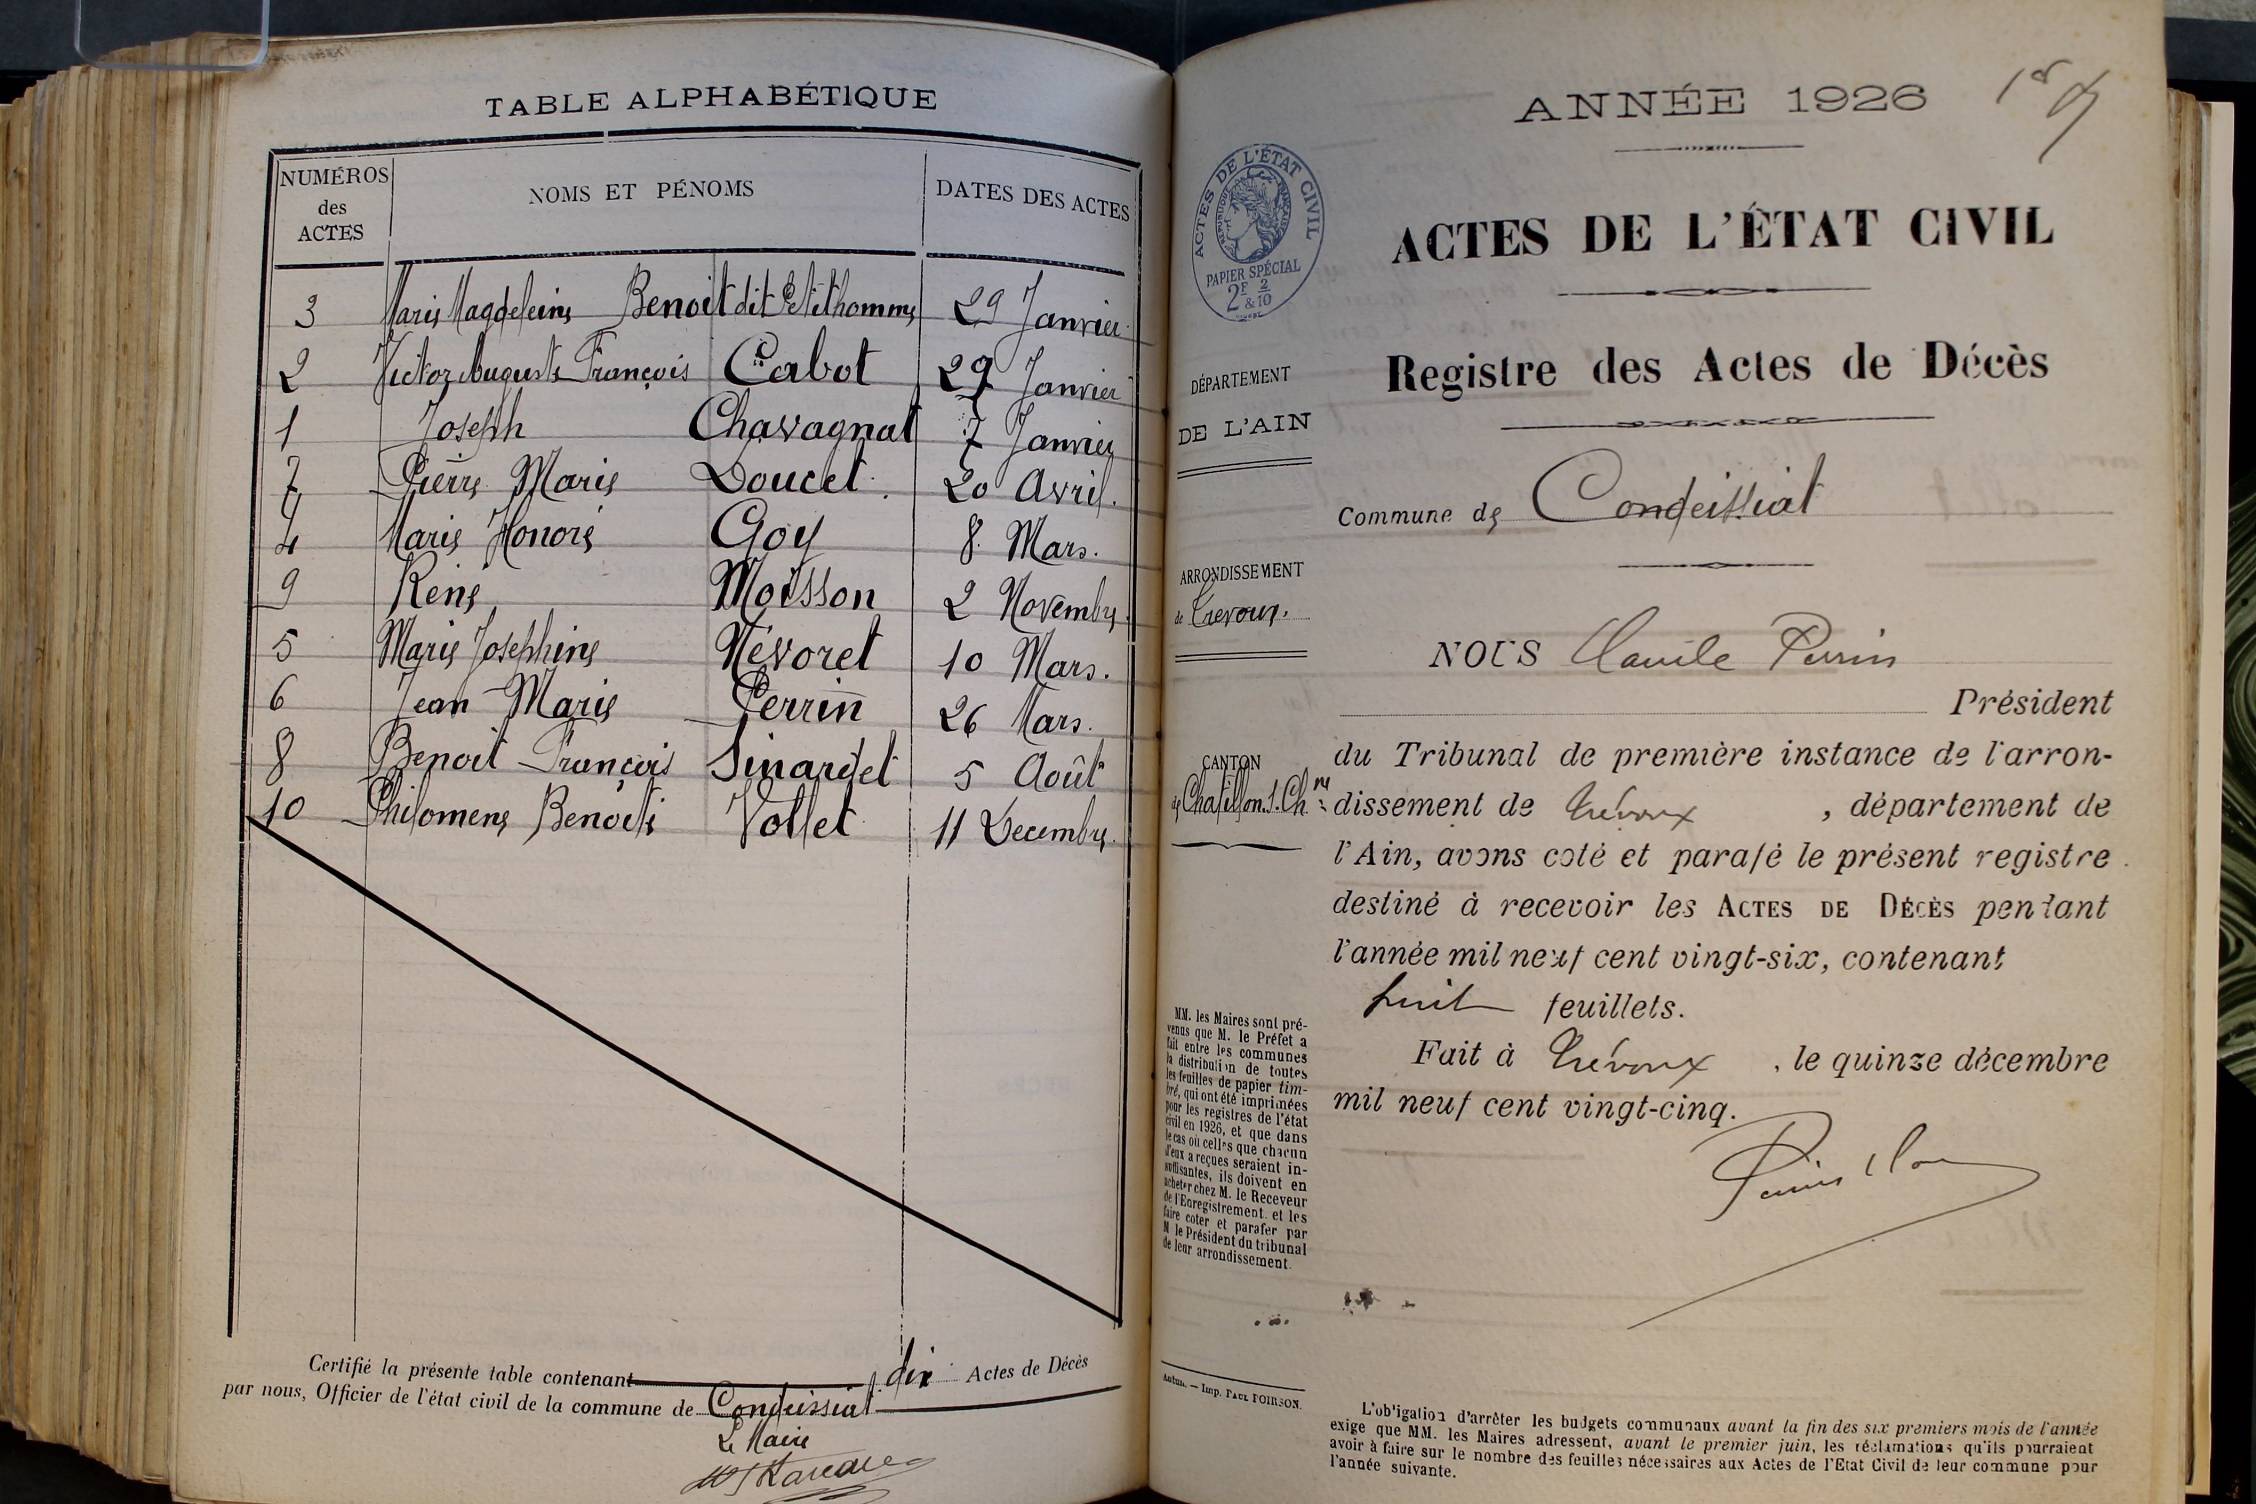 TABLE ALPHABÉTIQUE
NUMÉROS des ACTES NOMS ET PÉNOMS DATES DES ACTES
3 Marie Magdeleine Benoit dit Petithomme 29 Janvier
2 Victor Auguste François Cabot 29 Janvier
1 Joseph Chavagnat 7 Janvier
7 Pierre Marie Doucet 20 Avril.
4 Marie Honoré Goy 8 Mars.
9 René Moisson 2 Novembre
5 Marie Josephine Névoret 10 Mars.
6 Jean Marie Perrin 26 Mars.
8 Benoit François Sinardet 5 Août
10 Philomene Benoite Vollet 11 Decembre
Certifié la présente table contenant dix Actes de Décès
par nous, Officier de l'état civil de la commune de Condeissiat
Le Maire
ANNÉE 1926
1er
ACTES DE L'ÉTAT CIVIL
RÉPUBLIQUE FRANÇAISE
PAPIER SPÉCIAL
2F & 2/10
ACTES DE L'ÉTAT CIVIL
Registre des Actes de Décès
DÉPARTEMENT
DE L'AIN
Commune de Condeissiat
ARRONDISSEMENT
de Trevoux.
NOUS Claude Perrin
Président
CANTON
de Chatillon. s. Chne
du Tribunal de première instance de l'arron-
dissement de Trévoux, département de
l'Ain, avons coté et parafé le présent registre
destiné à recevoir les ACTES DE DÉCÈS pendant
l'année mil neuf cent vingt-six, contenant
huit feuillets.
Fait à Trévoux, le quinze décembre
mil neuf cent vingt-cinq.
MM. les Maires sont pré-
venus que M. le Préfet a
fait entre les communes
la distribution de toutes
les feuilles de papier tim-
bré, qui ont été imprimées
pour les registres de l'état
civil en 1926, et que dans
le cas où celles que chacun
d'eux a reçues seraient in-
suffisantes, ils doivent en
acheter chez M. le Receveur
de l'Enregistrement. et les
faire coter et parafer par
M le Président du tribunal
de leur arrondissement.
Autun. — Imp. PAUL POIRSON.
L'obligation d'arrêter les budgets communaux avant la fin des six premiers mois de l'année
exige que MM. les Maires adressent, avant le premier juin, les réclamations qu'ils pourraient
avoir à faire sur le nombre des feuilles nécessaires aux Actes de l'Etat Civil de leur commune pour
l'année suivante.